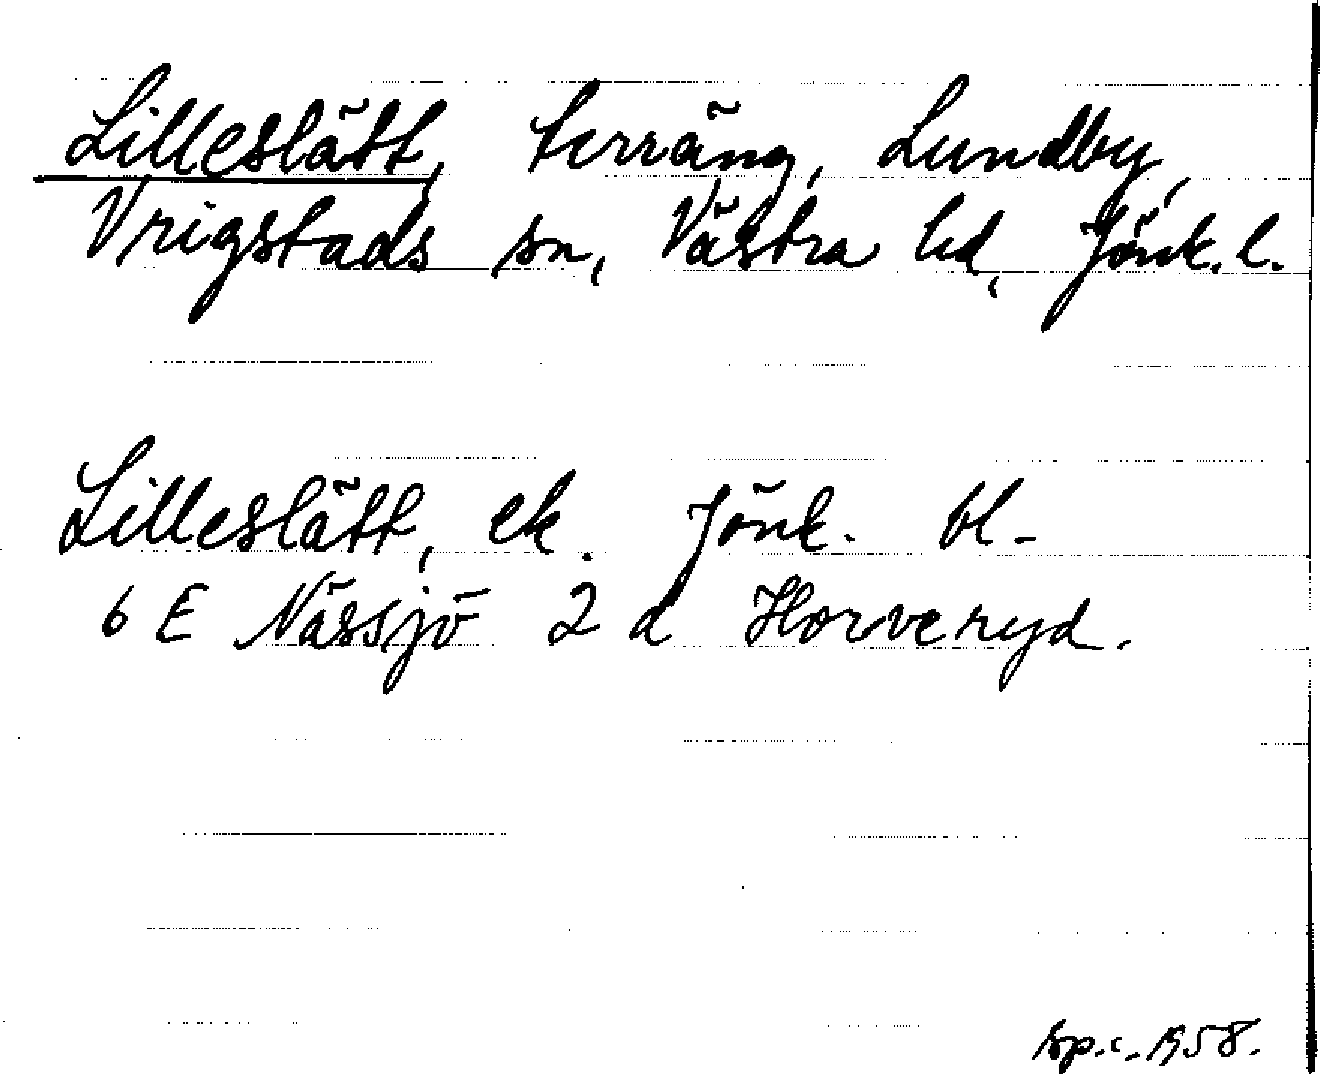 Lilleslätt, terräng, Lundby,
Vrigstads sn, Västra hd, Jönk. l.
Lilleslätt, ek. Jönk. bl-
6 E Nässjö 2 d Horveryd.
1958.